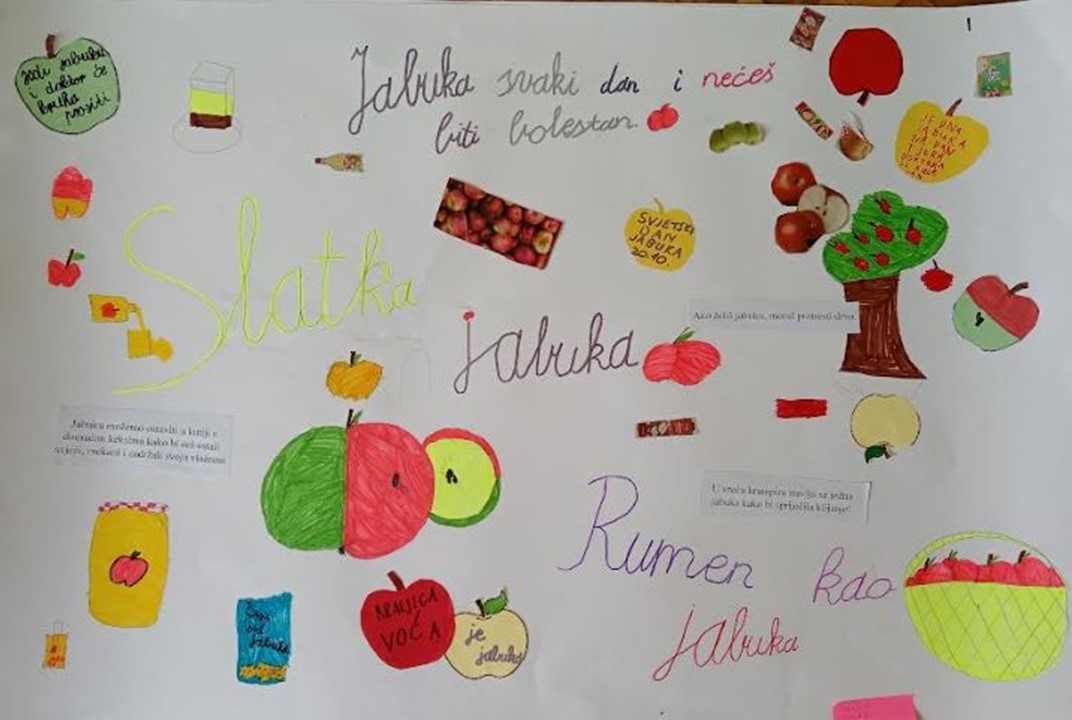 Jedi jabuku
i doktor će
kruha
prositi
Jabuka svaki dan i nećeš
biti bolestan.
JEDNA
JABUKA
NA DAN
TJERA
DOKTORA
IZ KUĆE
VAN
SVJETSKI
DAN
JABUKA
20.10.
Slatka
jabuka
Ako želiš jabuku, moraš protresti drvo.
Jabuku možemo ostaviti u kutiji s
domaćim keksima kako bi oni ostali
svježi, mekani i zadržali svoju vlažnost
U vreću krumpira stavlja se jedna
jabuka kako bi spriječila klijanje!
Rumen kao
jabuka
KRALJICA
VOĆA
je
jabuka
od
jabuke